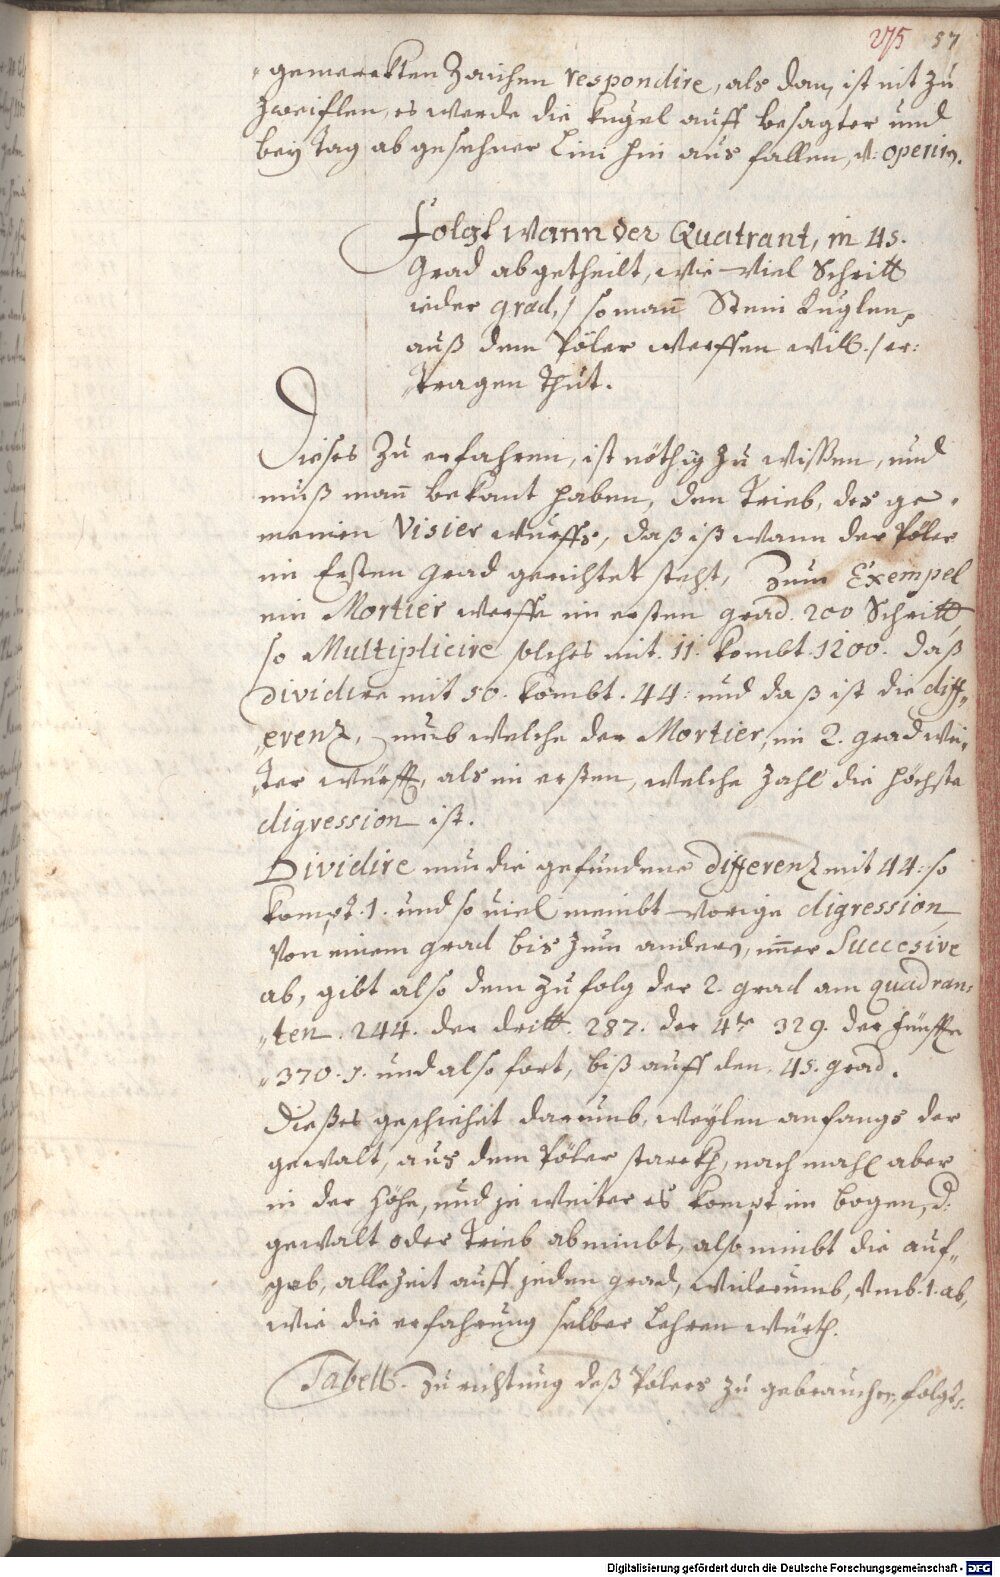 275 57
gemerckten Zaichen respondire, als dan, ist nit zu
zweiflen, es werde die Kugel auff besagter und
bey Tag abgesehner Lini hin aus fallen,
Folgt wann der Quatrant, in 45.
Grad abgetheilt, wie viel Schritt
ieder grad, / so man̄ Stein Kuglen,
auß dem Pöler werffen will. / er:
tragen thut.
Dieses zu erfahren, ist nöthig zu wissen, und
muß man̄ bekant haben, den Trieb, des ge-
meinen Visier wurffs, daß ist wann der Pöler
im Ersten grad gerichtet steht, Zum Exempel
ein Mortier werffe im ersten grad. 200 Schritt,
so Multiplicire solches mit. 11. kombt. 1200. daß
dividire mit 50. kombt. 44: und daß ist die diff„
„erenz, umb welche der Mortier, im 2. grad wei„
„ter würfft, als im ersten, welche Zahl die höchste
digression ist.
Dividire nun die gefundene differenz mit 44: so
kompt. 1. und so viel nimbt vorige digression
Von einem grad bis zum andern, im̄er Succesive
ab, gibt also dem zufolg der 2. grad am quadran„
„ten. 244. der dritt. 287. der 4te 329. der fünffte
„370. und also fort, biß auff den. 45. grad.
Dießes geschiehet darumb, weylen anfangs der
gewalt, aus dem Pöler starckh, nach mahl aber
in der Höhe, und je weiter es kompt im bogen, d:
gewalt oder Trieb abnimbt, also nimbt die auf„
gab, allezeit auff jeden grad, widerumb, vmb. 1. ab,
wie die erfahrung selber Lehren würth.
Tabell. Zu richtung deß Pölers zu gebrauchen, folgt.
Digitalisierung gefördert durch die Deutsche Forschungsgemeinschaft - DFG